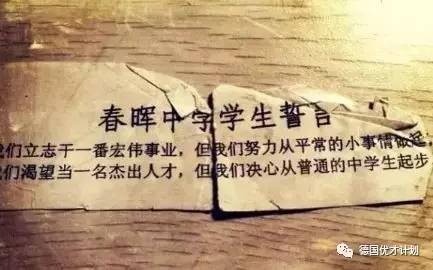 春晖中学学生誓言
我们立志干一番宏伟事业，但我们努力从平常的小事情做起，
我们渴望当一名杰出人才，但我们决心从普通的中学生起步
德国优才计划